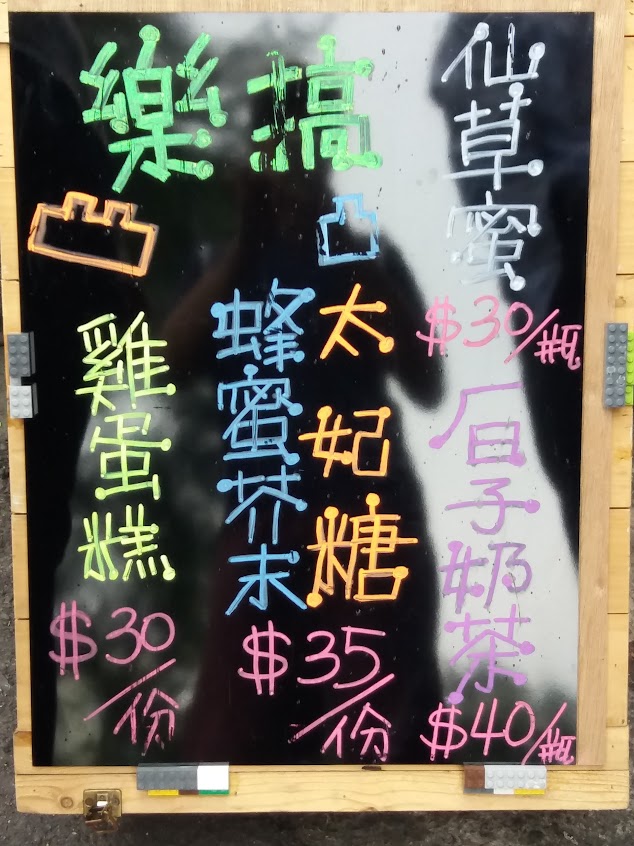 樂搞
仙草蜜
$30/瓶
厚奶茶
$40/瓶
太妃糖
蜂蜜芥末
$35/份
雞蛋糕
$30/份